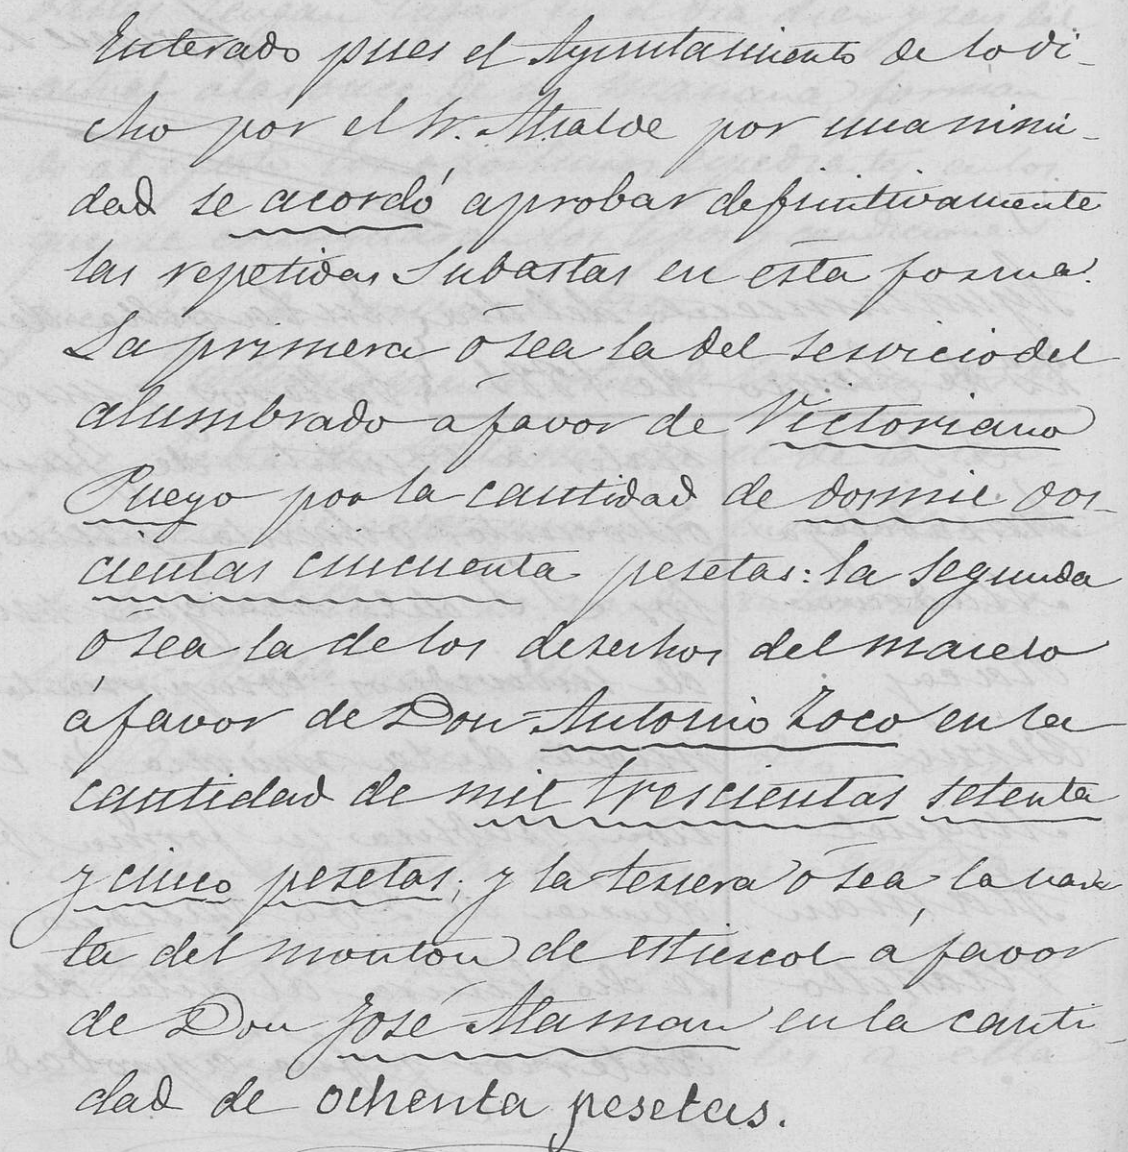 Enterado pues el Ayuntamiento de lo di-
cho por el Sr. Alcalde por unanimi-
dad se acordó aprobar definitivamente
las repetidas subastas en esta forma.
La primera ó sea la del servicio del
alumbrado a favor de Victoriano
Pueyo por la cantidad de dos mil dos-
cientas cincuenta pesetas: la segunda
o sea la de los desechos del macelo
á favor de Don Antonio Zoco en la
cantidad de mil trescientas setenta
y cinco pesetas, y la tercera ó sea la
ta del monton de estiercol á favor
de Don José Alaman en la canti
dad de ochenta pesetas.